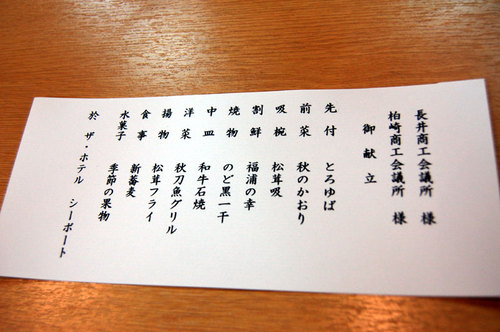 長井商工会議所 様
柏崎商工会議所 様
御献立
先付 とろゆば
前菜 秋のかおり
吸椀 松茸吸
割鮮 福浦の幸
焼物 のど黒一干
中皿 和牛石焼
洋菜 秋刀魚グリル
揚物 松茸フライ
食事 新蕎麦
水菓子 季節の果物
於 ザ・ホテル シーポート